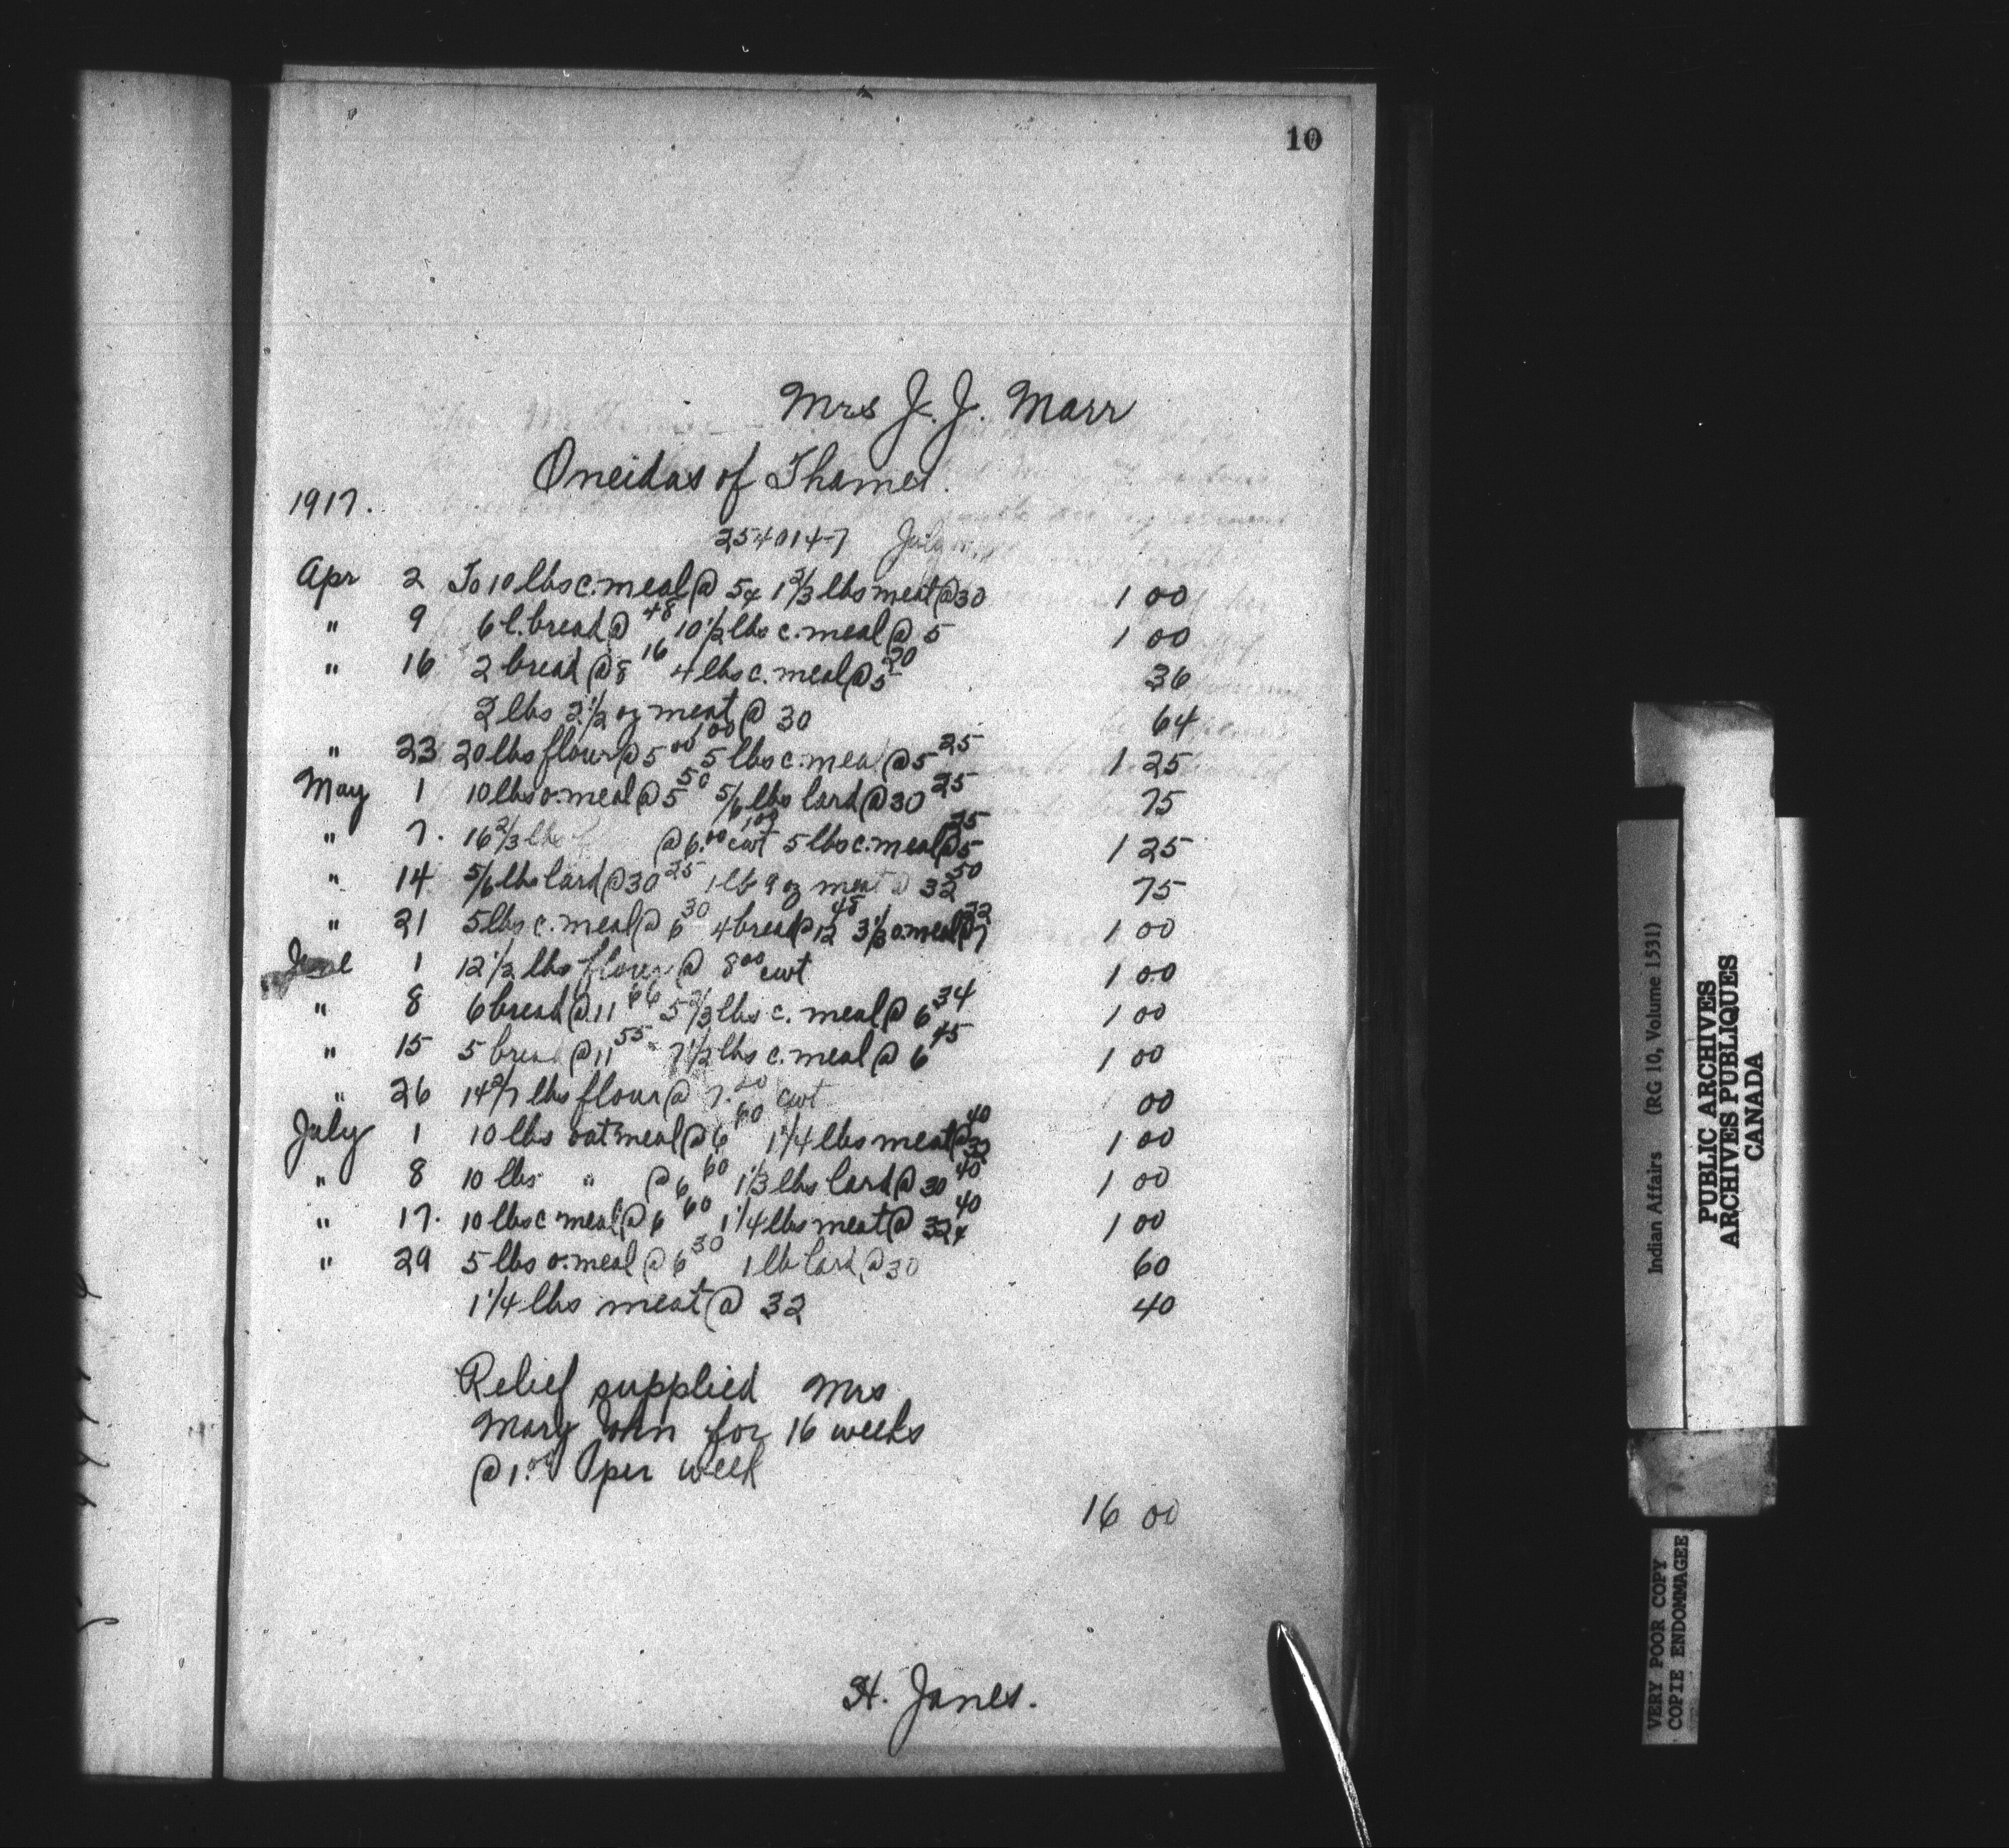 10
Mrs J. J. Marr
Oneidas of Thames.
1917.
254014-7 July
Apr 2 To 10 lbs c. meal @ 5¢ 1 2/3 lbs meat @ 30 1 00
" 9 6 l. bread @ 48 10 1/2 lbs c. meal @ 5 1 00
" 16 2 bread @ 8 16 4 lbs c. meal @ 5 20 36
2 lbs 2 1/2 oz meat @ 30 64
" 23 20 lbs flour @ 5 00 100 5 lbs c. meal @ 5 25 1 25
May 1 10 lbs o. meal @ 5 50 5/6 lbs lard @ 30 25 75
" 7. 16 2/3 lbs @ 6.00 cwt 100 5 lbs c. meal @ 5 25 1 25
" 14 5/6 lbs lard @ 30 25 1 lb 9 oz meat @ 32 50 75
" 21 5 lbs c. meal @ 6 30 4 bread @ 12 48 3 1/3 o. meal @ 7 22 1 00
June 1 12 1/2 lbs flour @ 8 00 cwt 1 00
" 8 6 bread @ 11 66 5 2/3 lbs c. meal @ 6 34 1 00
" 15 5 bread @ 11 55 7 1/2 lbs c. meal @ 6 45 1 00
" 26 14 2/7 lbs flour @ 7. cwt 00
July 1 10 lbs oatmeal @ 6 60 1 1/4 lbs meat @ 32 40 1 00
" 8 10 lbs " @ 6 60 1 1/3 lbs lard @ 30 40 1 00
" 17. 10 lbs c meal @ 6 60 1 1/4 lbs meat @ 32¢ 40 1 00
" 29 5 lbs o. meal @ 6 30 1 lb lard @ 30 60
1 1/4 lbs meat @ 32 40
Relief supplied Mrs
Mary John for 16 weeks
@ 1.00 per week
16 00
H. Janes.
Indian Affairs (RG 10, Volume 1531)
PUBLIC ARCHIVES
ARCHIVES PUBLIQUES
CANADA
VERY POOR COPY
COPIE ENDOMMAGEE